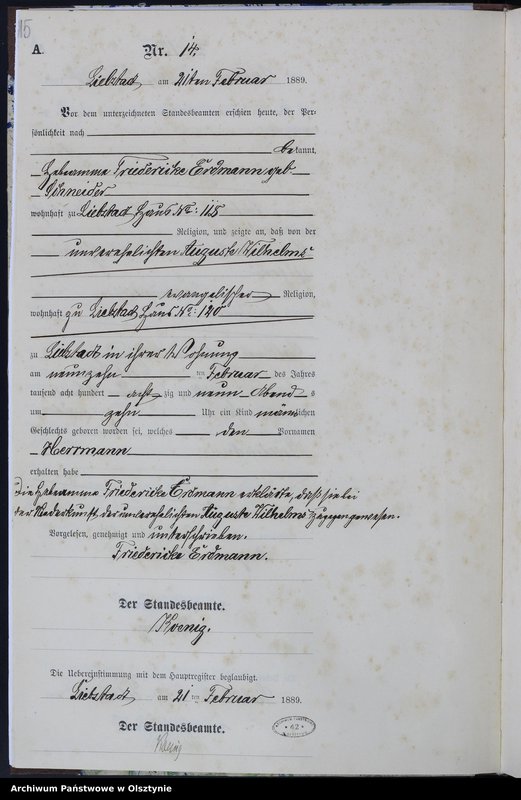 15
A.
Nr. 14.
Liebstadt am 21ten Februar 1889.
Vor dem unterzeichneten Standesbeamten erschien heute, der Per-
sönlichkeit nach
bekannt,
Hebeamme Friedericke Erdmann geb
Schneider
wohnhaft zu Liebstadt Haus No: 118
Religion, und zeigte an, daß von der
unverehelichten Auguste Wilhelms
evangelischer Religion,
wohnhaft zu Liebstadt Haus No: 120
zu Liebstadt in ihrer Wohnung
am neunzehn ten Februar des Jahres
tausend acht hundert acht zig und neun Abend s
um zehn Uhr ein Kind männlichen
Geschlechts geboren worden sei, welches den Vornamen
Herrmann
erhalten habe
Die Hebeamme Friedericke Erdmann erklärte, daß sie bei
der Niederkunft der unverehelichten Auguste Wilhelms zugegen gewesen.
Vorgelesen, genehmigt und unterschrieben.
Friedericke Erdmann.
Der Standesbeamte.
Koenig.
Die Uebereinstimmung mit dem Hauptregister beglaubigt.
Liebstadt am 21 ten Februar 1889.
Der Standesbeamte.
Koenig
Archiwum Państwowe w Olsztynie Archiwum Państwowe w Olsztynie